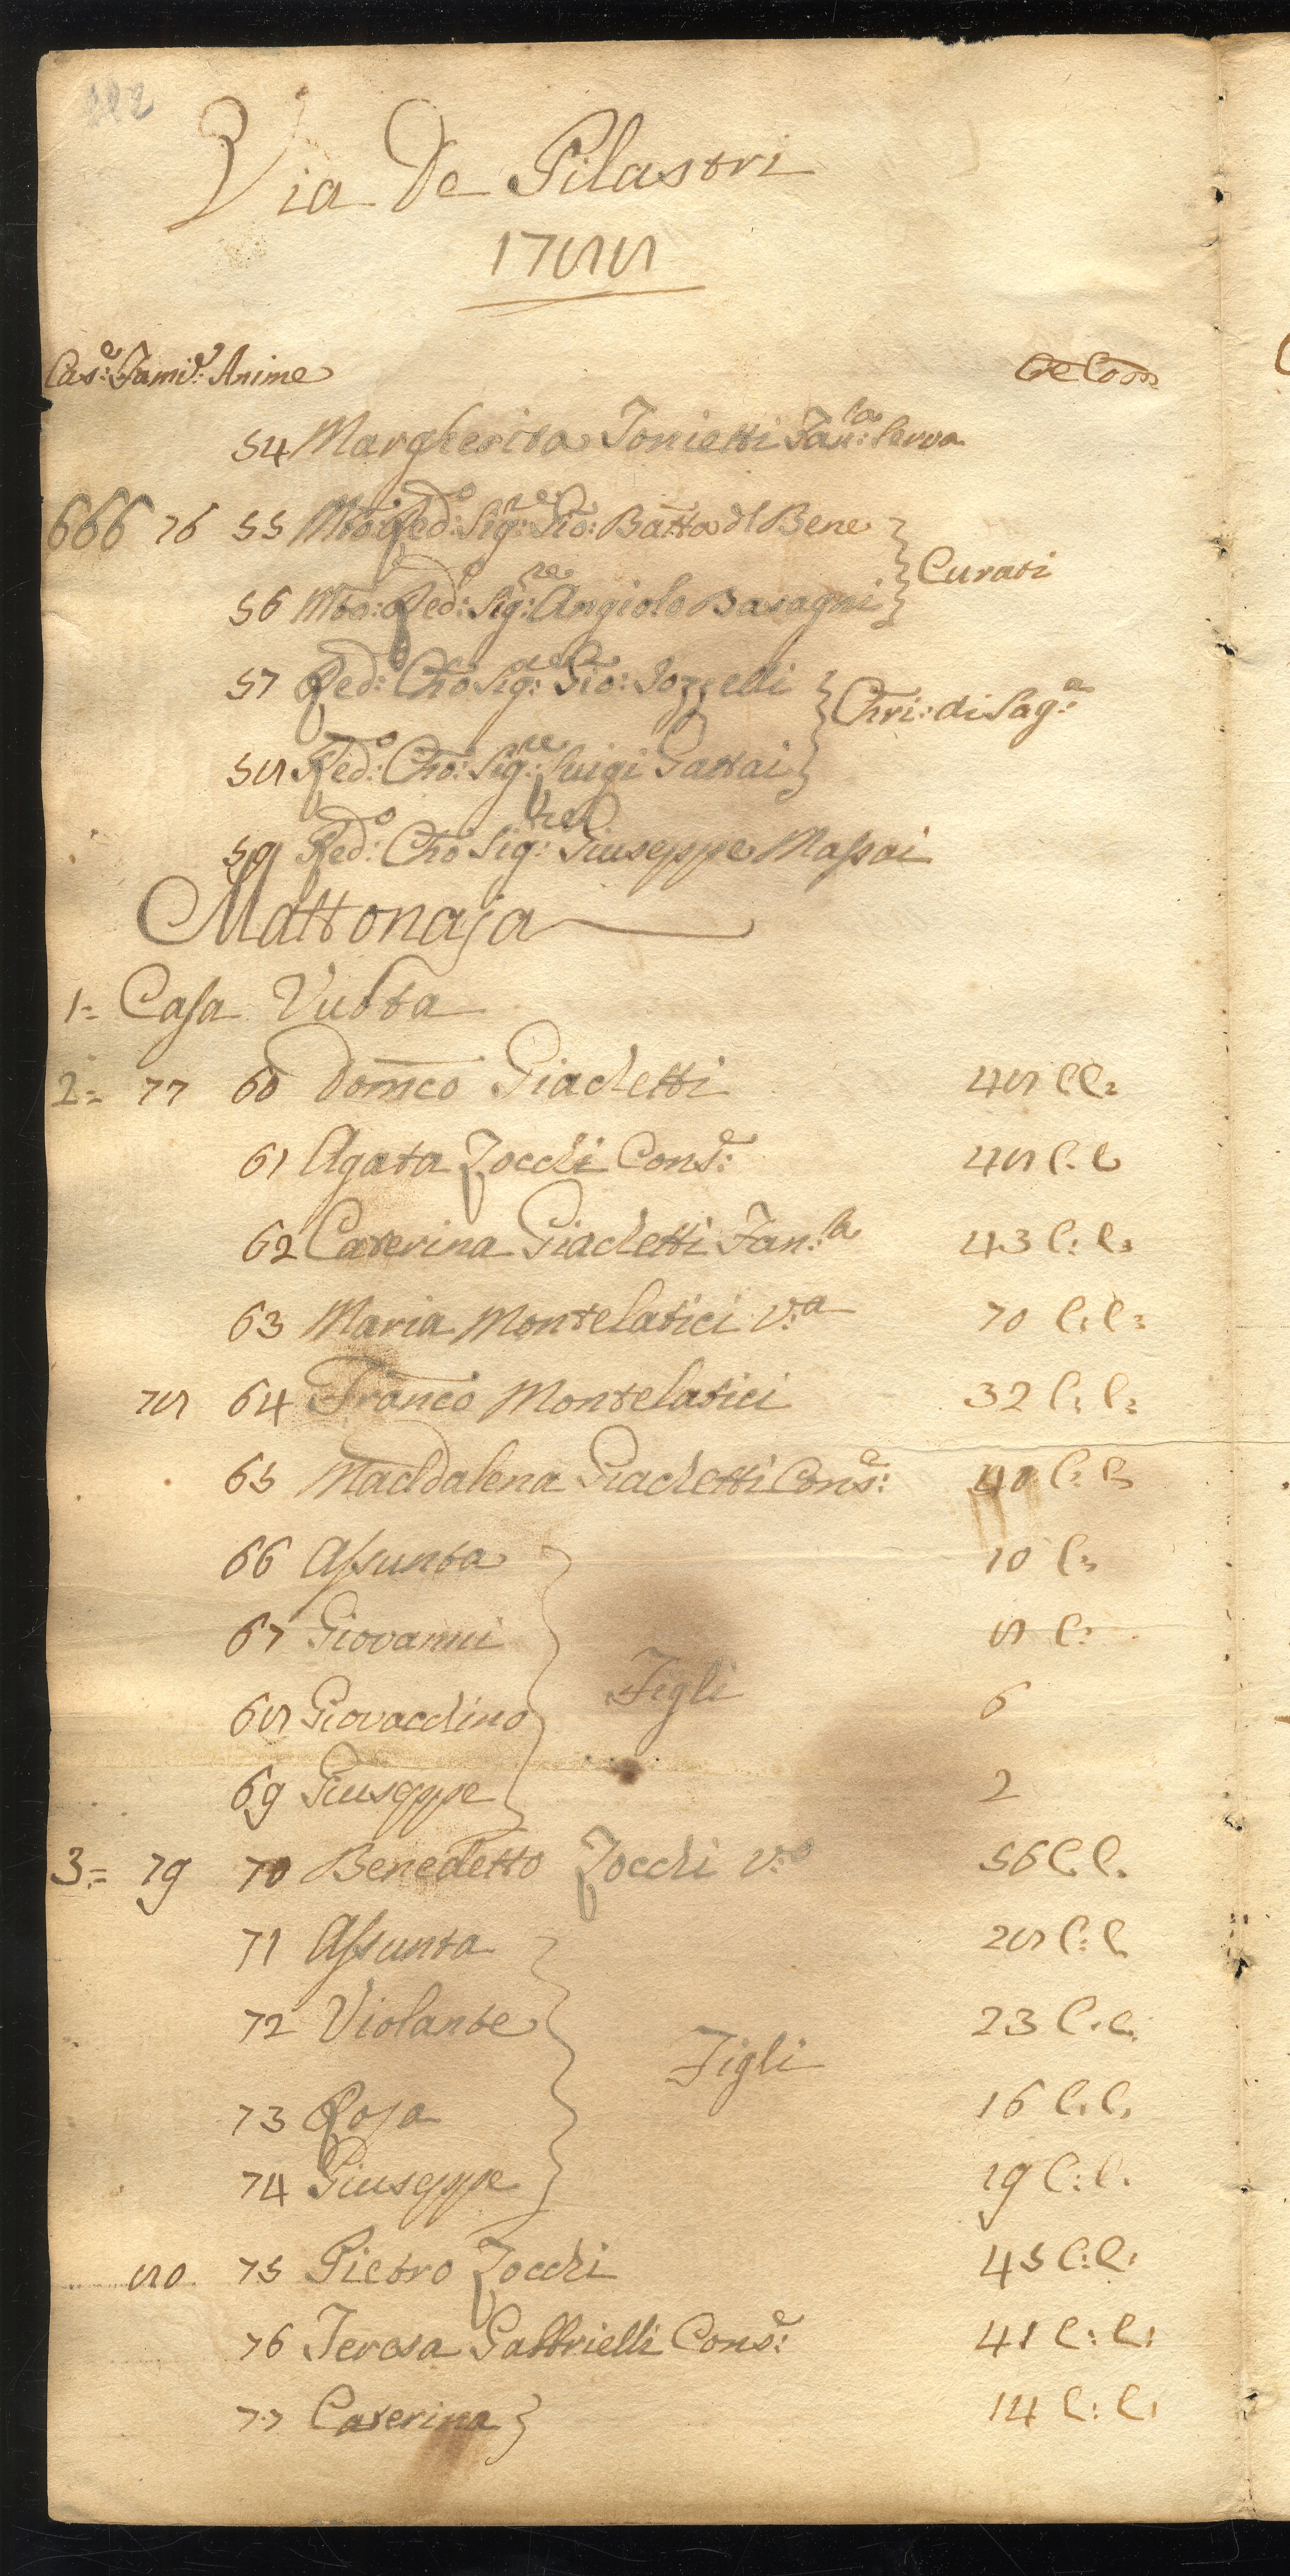 Via De Pilastri
1788
Cas:e Fami:e Anime Cre Com
54 Margherita Tonietti Fan:la serva
666 76 55 Mto: Red:o Sig:re Gio: Batta dl Bene
Curati
56 Mto: Red:o Sig:re Angiolo Basagni
57 Red:o Cho Sig:re Gio: Iozzelli
Chri: di Sag:a
58 Red:o Cho: Sig:re Luigi Gattai
59 Red:o Cho Sig:re Giuseppe Massai
Mattonaja
1= Casa Vuota
2= 77 60 Domco Giachetti 48 C C:
61 Agata Zocchi Cons:e 48 C. C
62 Caterina Giachetti Fan:la 43 C: C:
63 Maria Montelatici V:a 70 C: C:
78 64 Franco Montelatici 32 C: C:
65 Maddalena Giachetti Cons:e 40 C: C
66 Assunta 10 C:
67 Giovanni 8 C:
Figli
68 Giovacchino 6
69 Giuseppe 2
3= 79 70 Benedetto Zocchi V:o 56 C. C.
71 Assunta 28 C: C
72 Violante 23 C. C.
Figli
73 Rosa 16 C. C.
74 Giuseppe 19 C: C.
80 75 Pietro Zocchi 45 C: C:
76 Teresa Gabbrielli Cons:e 41 C: C:
77 Caterina 14 C: C: